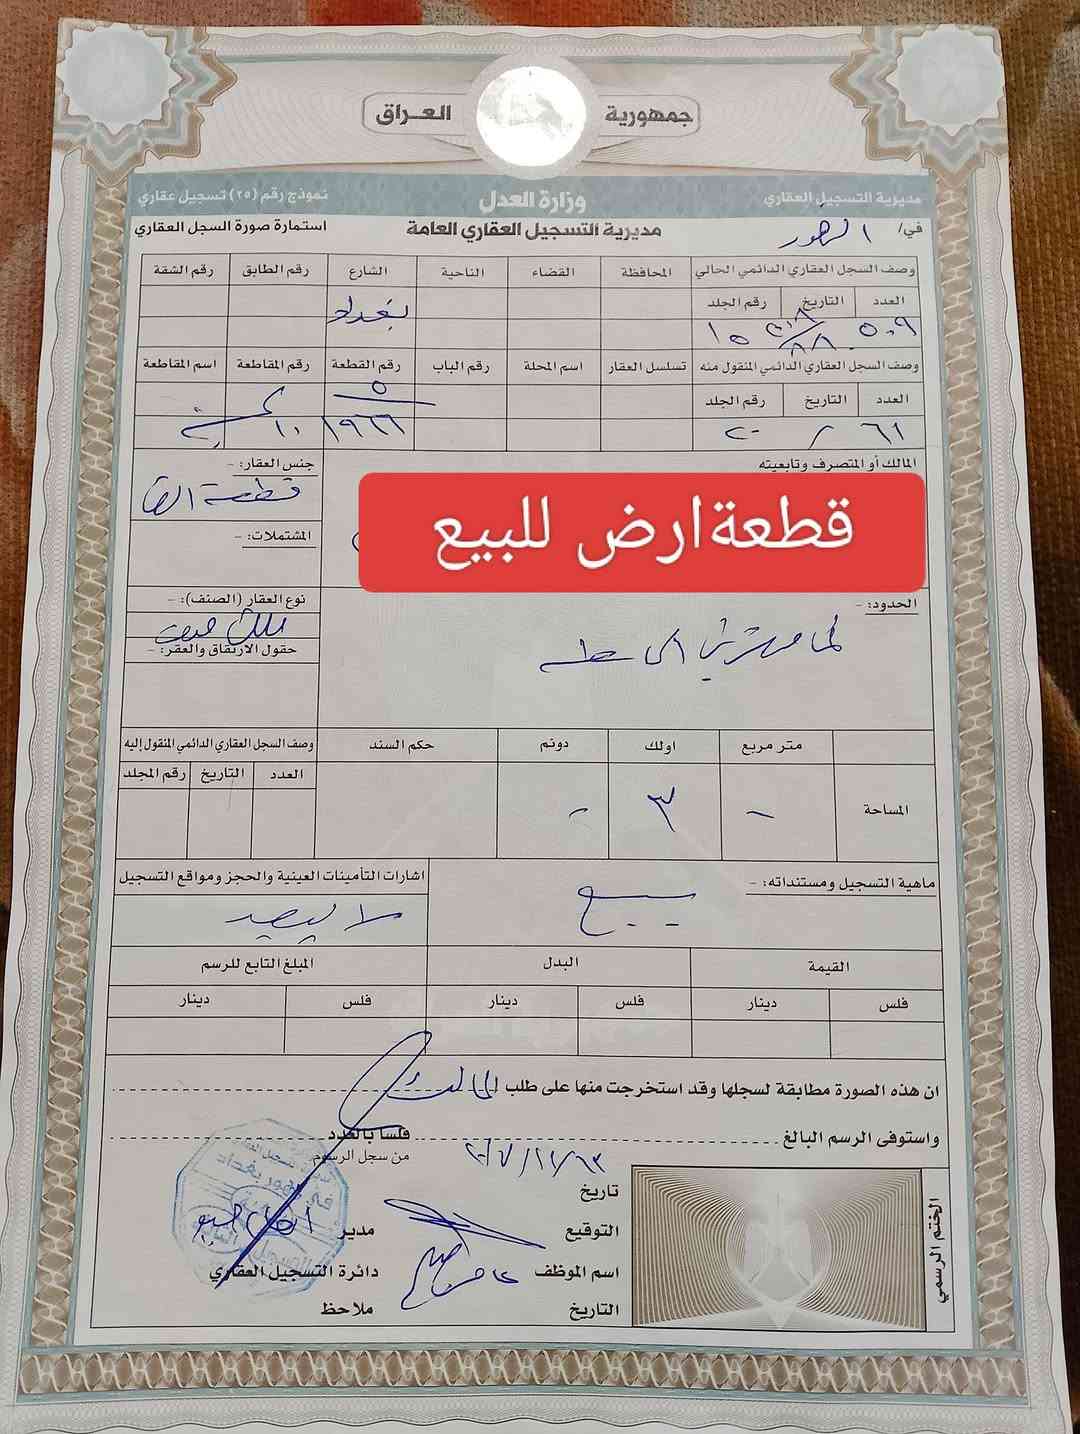 جمهورية العراق
مديرية التسجيل العقاري وزارة العدل نموذج رقم (٢٥) تسجيل عقاري
في/ مديرية التسجيل العقاري العامة استمارة صورة السجل العقاري
وصف السجل العقاري الدائمي الحالي المحافظة القضاء الناحية الشارع رقم الطابق رقم الشقة
العدد التاريخ رقم الجلد بغداد
وصف السجل العقاري الدائمي المنقول منه تسلسل العقار اسم المحلة رقم الباب رقم القطعة رقم المقاطعة اسم المقاطعة
العدد التاريخ رقم الجلد ٥
٦١ ١٩٦٦ ١٠
المالك أو المتصرف وتابعيته جنس العقار: -
قطعة
قطعة ارض للبيع
المشتملات: -
الحدود: - نوع العقار (الصنف): -
ملك
حقول الارتفاق والعقر: -
متر مربع اولك دونم حكم السند وصف السجل العقاري الدائمي المنقول إليه
العدد التاريخ رقم المجلد
المساحة - ٣ -
ماهية التسجيل ومستنداته: - اشارات التأمينات العينية والحجز ومواقع التسجيل
بيع لا يوجد
القيمة البدل المبلغ التابع للرسم
فلس دينار فلس دينار فلس دينار
ان هذه الصورة مطابقة لسجلها وقد استخرجت منها على طلب المالك
واستوفى الرسم البالغ فلسا بالعدد
من سجل الرسوم
تاريخ
التوقيع مدير
اسم الموظف دائرة التسجيل العقاري
التاريخ ملاحظ
الختم الرسمي